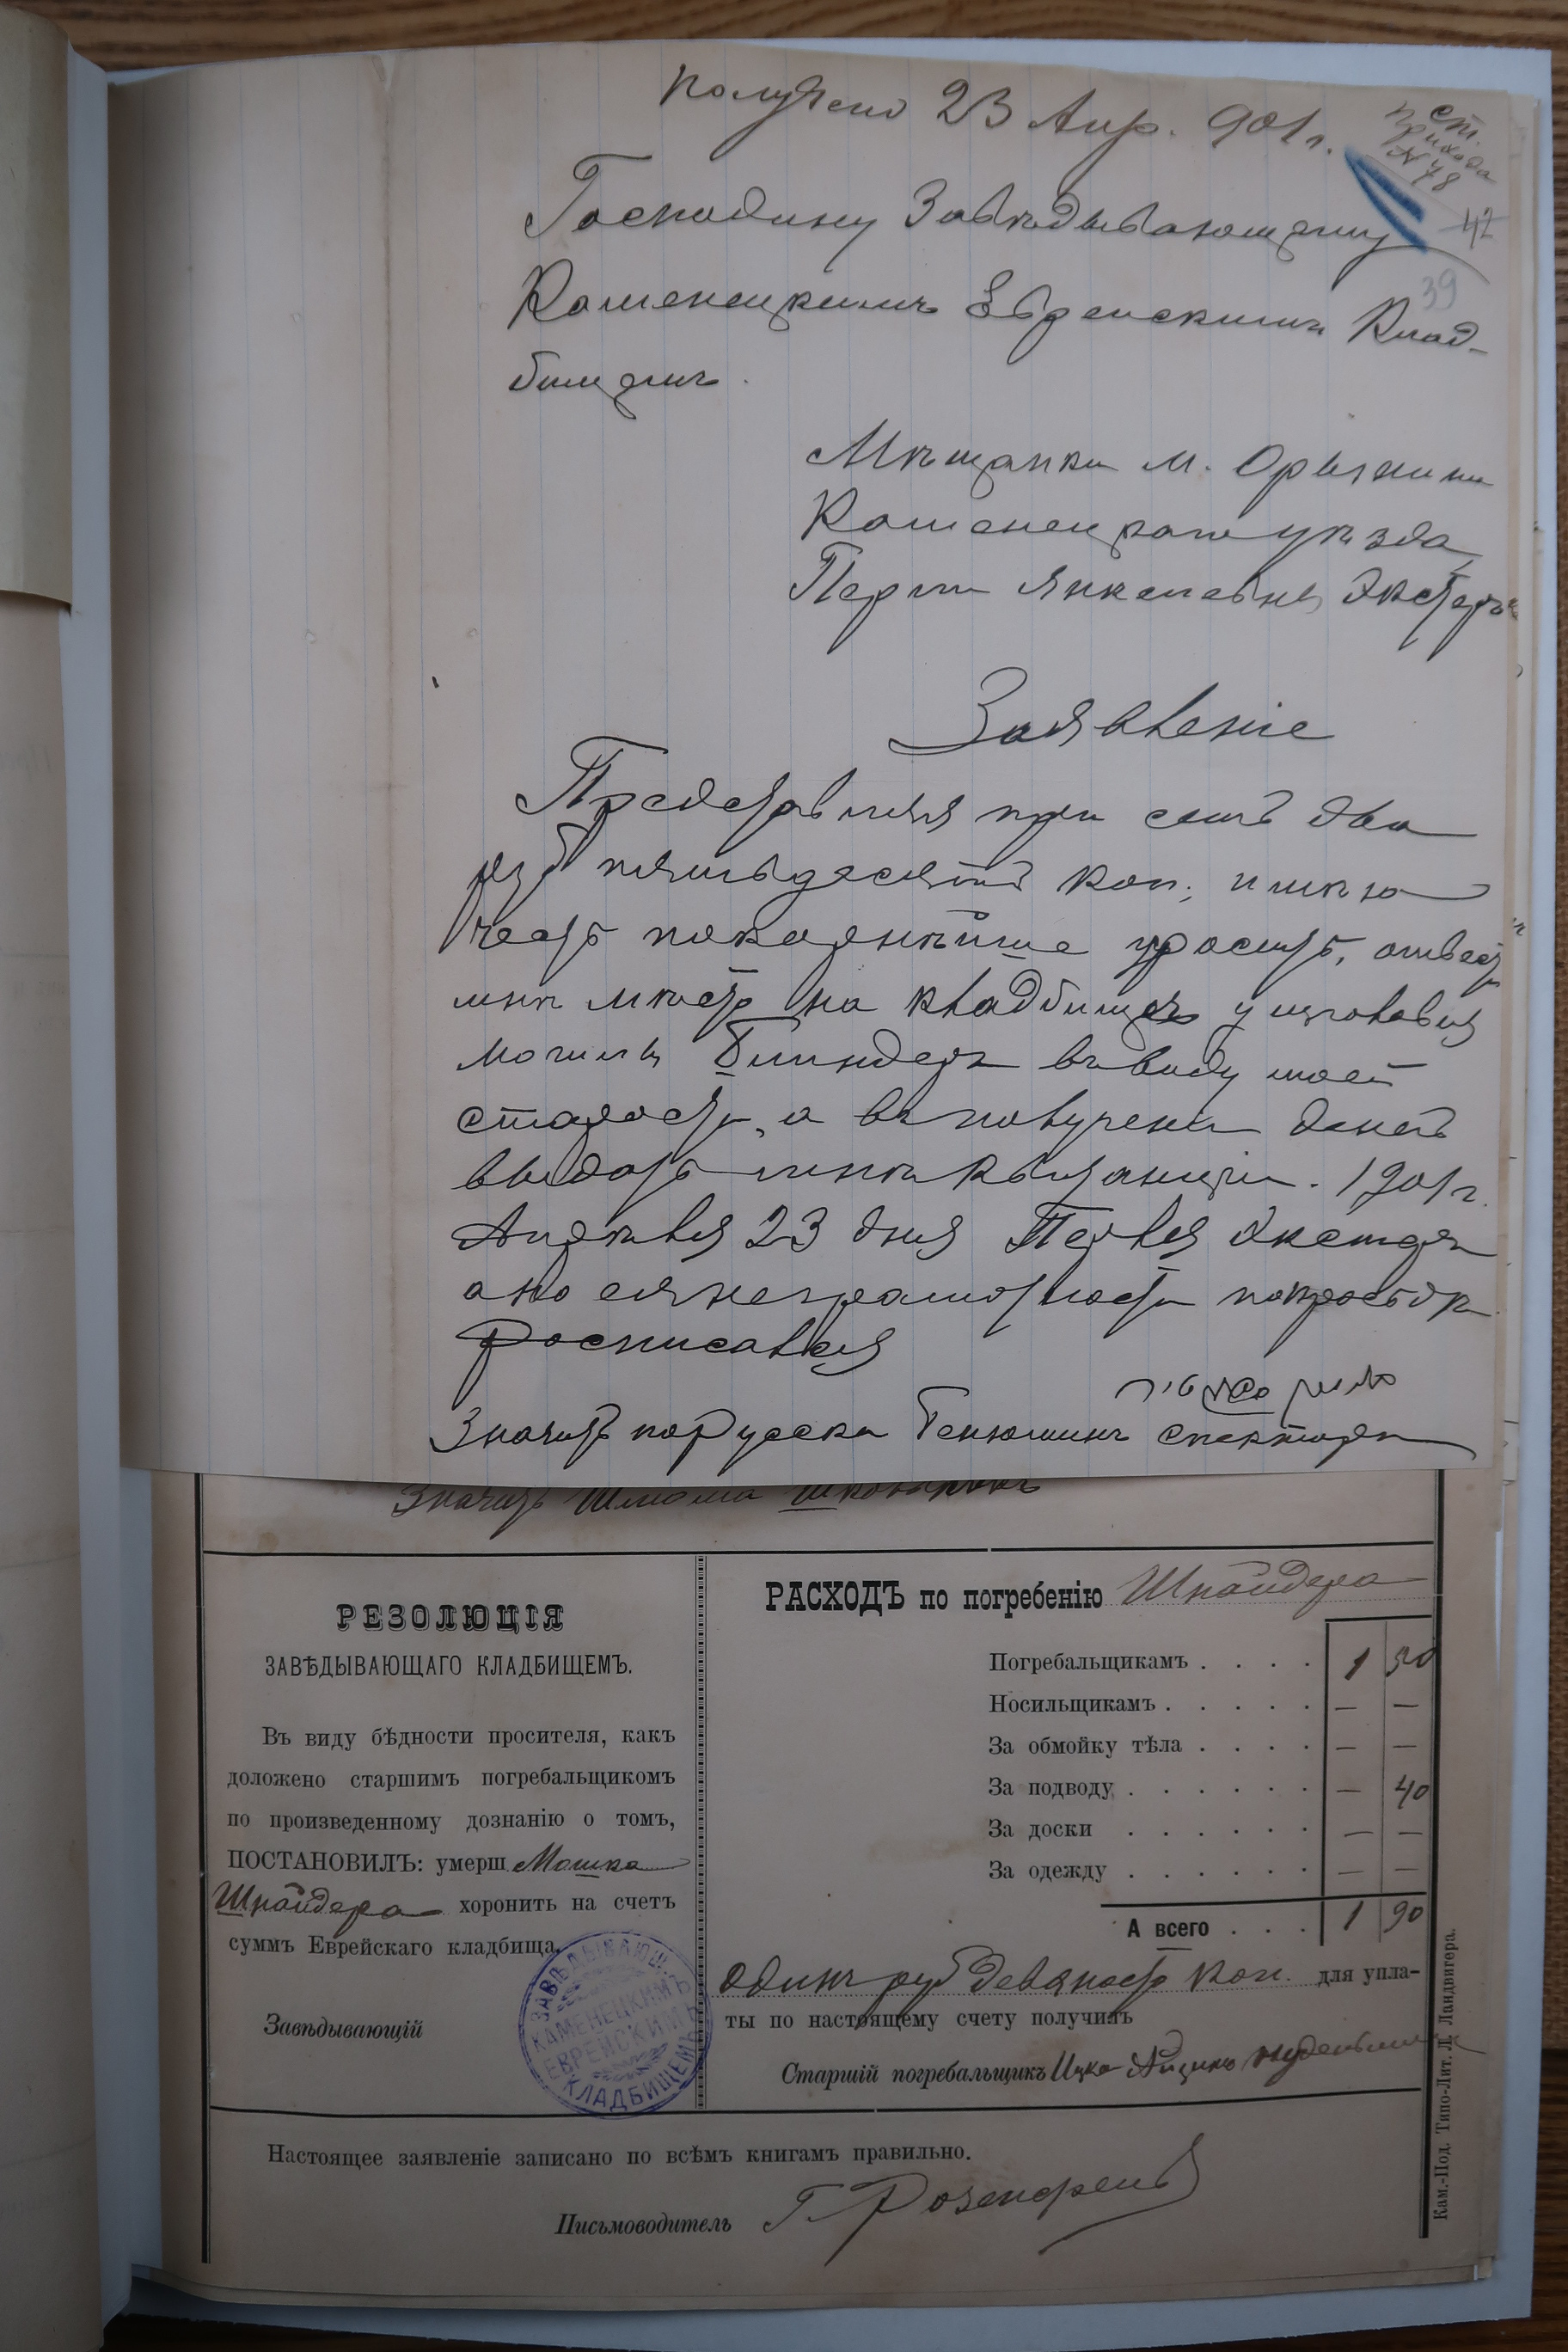 Получено 23 Апр. 901 г.
ст.
прихода
№ 78
42
39
Господину Завѣдывающему
Каменецкимъ Еврейскимъ Клад-
бищемъ.
Мѣщанки м. Орынина
Каменецкаго уѣзда
Перли Янкелевны Экстеръ
Заявленіе
Представляя при семъ два
руб пятьдесятъ коп. имѣю
честь покорнѣйше просить, отвесть
мнѣ мѣсто на кладбищѣ у изголовья
могилы ввиду моей
старости, а въ получени денегъ
выдать мнѣ квитанцiи. 1901 г.
Апрѣля 23 дня Перля Экстеръ
а по ея неграмотности по просьбѣ
росписался
Значитъ по русски Бенюминъ Спекторъ
Значитъ Шлома
РЕЗОЛЮЦІЯ
ЗАВѢДЫВАЮЩАГО КЛАДБИЩЕМЪ.
Въ виду бѣдности просителя, какъ
доложено старшимъ погребальщикомъ
по произведенному дознанію о томъ,
ПОСТАНОВИЛЪ: умерш Мошка
Шнайдера хоронить на счетъ
суммъ Еврейскаго кладбища.
Завѣдывающій
ЗАВѢДЫВАЮЩ.
КАМЕНЕЦКИМЪ
ЕВРЕЙСКИМЪ
КЛАДБИЩЕМЪ
РАСХОДЪ по погребенію Шнайдера
Погребальщикамъ . . . . 1 50
Носильщикамъ . . . . . — —
За обмойку тѣла . . . . — —
За подводу . . . . . . — 40
За доски . . . . . . — —
За одежду . . . . . . — —
А всего . . . 1 90
одинъ руб девяносто коп. для упла-
ты по настоящему счету получилъ
Старшій погребальщикъ Ицко Айзикъ
Настоящее заявленіе записано по всѣмъ книгамъ правильно.
Письмоводитель Г. Розенфельд
Кам.-Под. Типо-Лит. Л. Ландвигера.